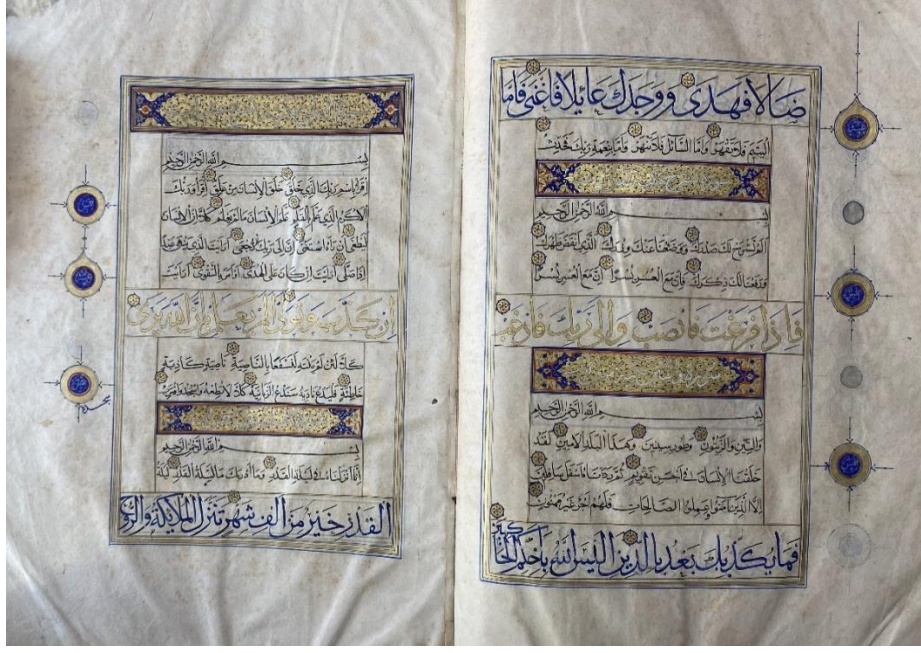 ضالا فهدى ووجدك عائلا فاغنى فاما
اليتيم فلا تقهر واما السائل فلا تنهر واما بنعمة ربك فحدث
بسم الله الرحمن الرحيم
الم نشرح لك صدرك ووضعنا عنك وزرك الذي انقض ظهرك
ورفعنا لك ذكرك فان مع العسر يسرا ان مع العسر يسرا
فاذا فرغت فانصب والى ربك فارغب
بسم الله الرحمن الرحيم
والتين والزيتون وطور سينين وهذا البلد الامين لقد
خلقنا الانسان في احسن تقويم ثم رددناه اسفل سافلين
الا الذين آمنوا وعملوا الصالحات فلهم اجر غير ممنون
فما يكذبك بعد بالدين اليس الله باحكم الحاكمين
بسم الله الرحمن الرحيم
اقرا باسم ربك الذي خلق خلق الانسان من علق اقرا وربك
الاكرم الذي علم بالقلم علم الانسان ما لم يعلم كلا ان الانسان
ليطغى ان رآه استغنى ان الى ربك الرجعى ارايت الذي ينهى عبدا
اذا صلى ارايت ان كان على الهدى او امر بالتقوى ارايت
ان كذب وتولى الم يعلم بان الله يرى
كلا لئن لم ينته لنسفعا بالناصية ناصية كاذبة
خاطئة فليدع ناديه سندع الزبانية كلا لا تطعه واسجد واقترب
بسم الله الرحمن الرحيم
انا انزلناه في ليلة القدر وما ادريك ما ليلة القدر ليلة
القدر خير من الف شهر تنزل الملايكة والروح